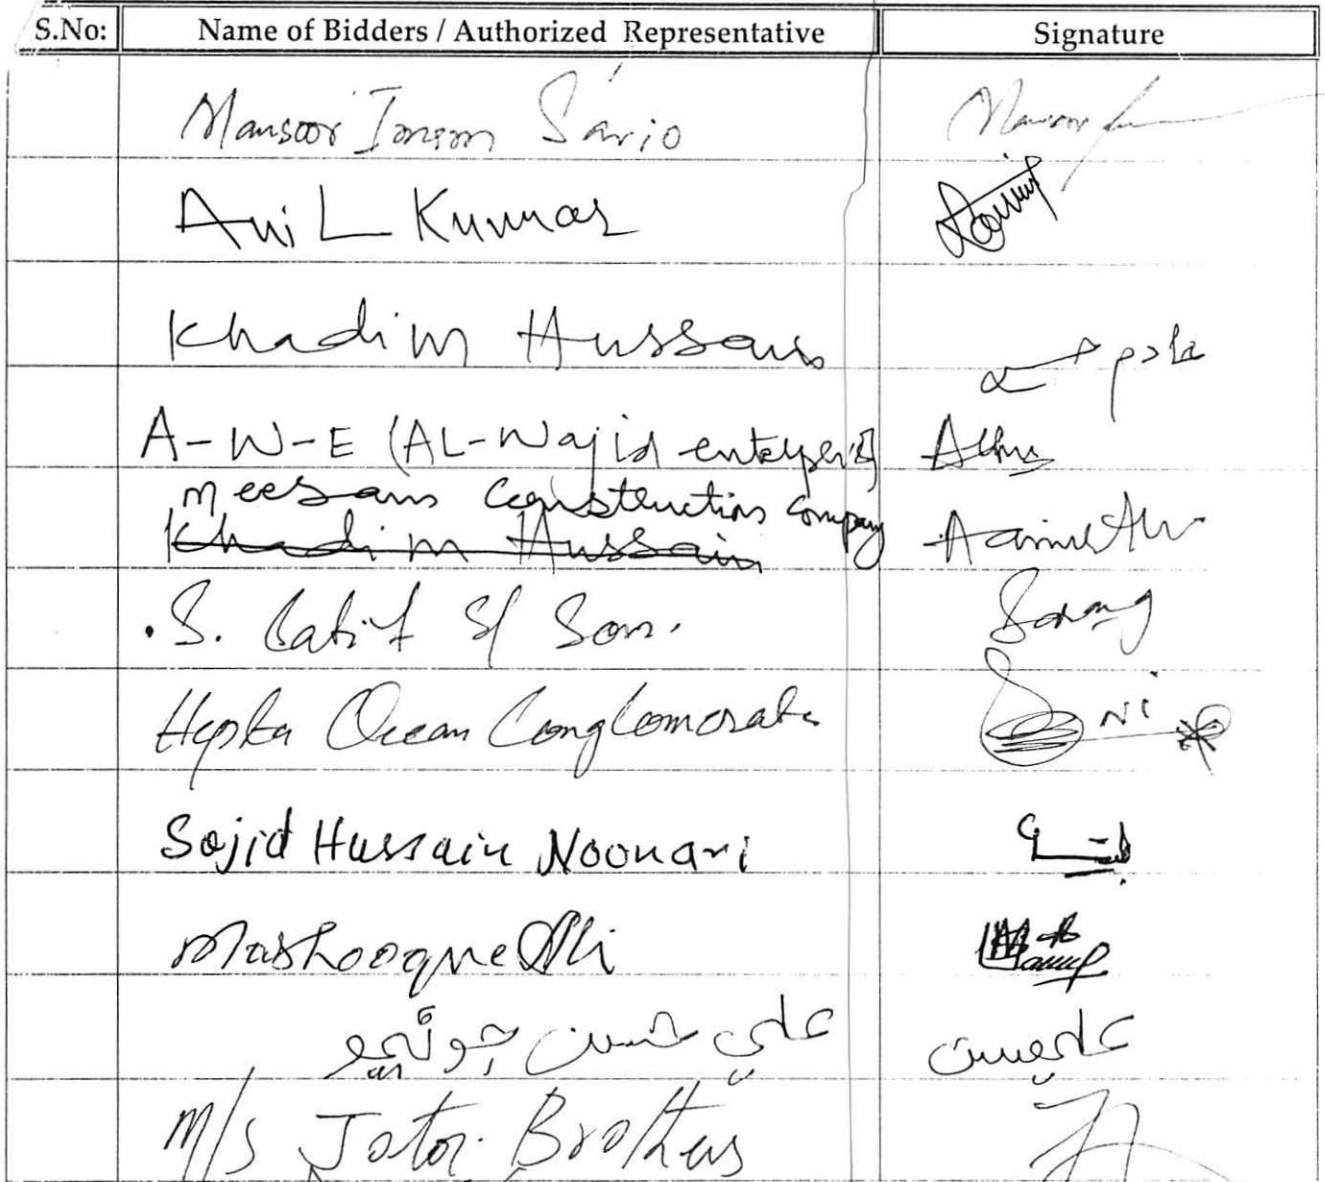 S.No: Name of Bidders / Authorized Representative Signature
Mansoor Sario Mansoor
Anil Kumar
Khadim Hussain خادم حسين
A-W-E (AL-Wajid
Meesan Construction Company
Khadim Hussain
S. Latif & Son.
Hepta Ocean Conglomorate
Sajid Hussain Noonari
Mashooque Ali
علي حسن جوڻيجو علي حسن
M/S Jatoi Brothers